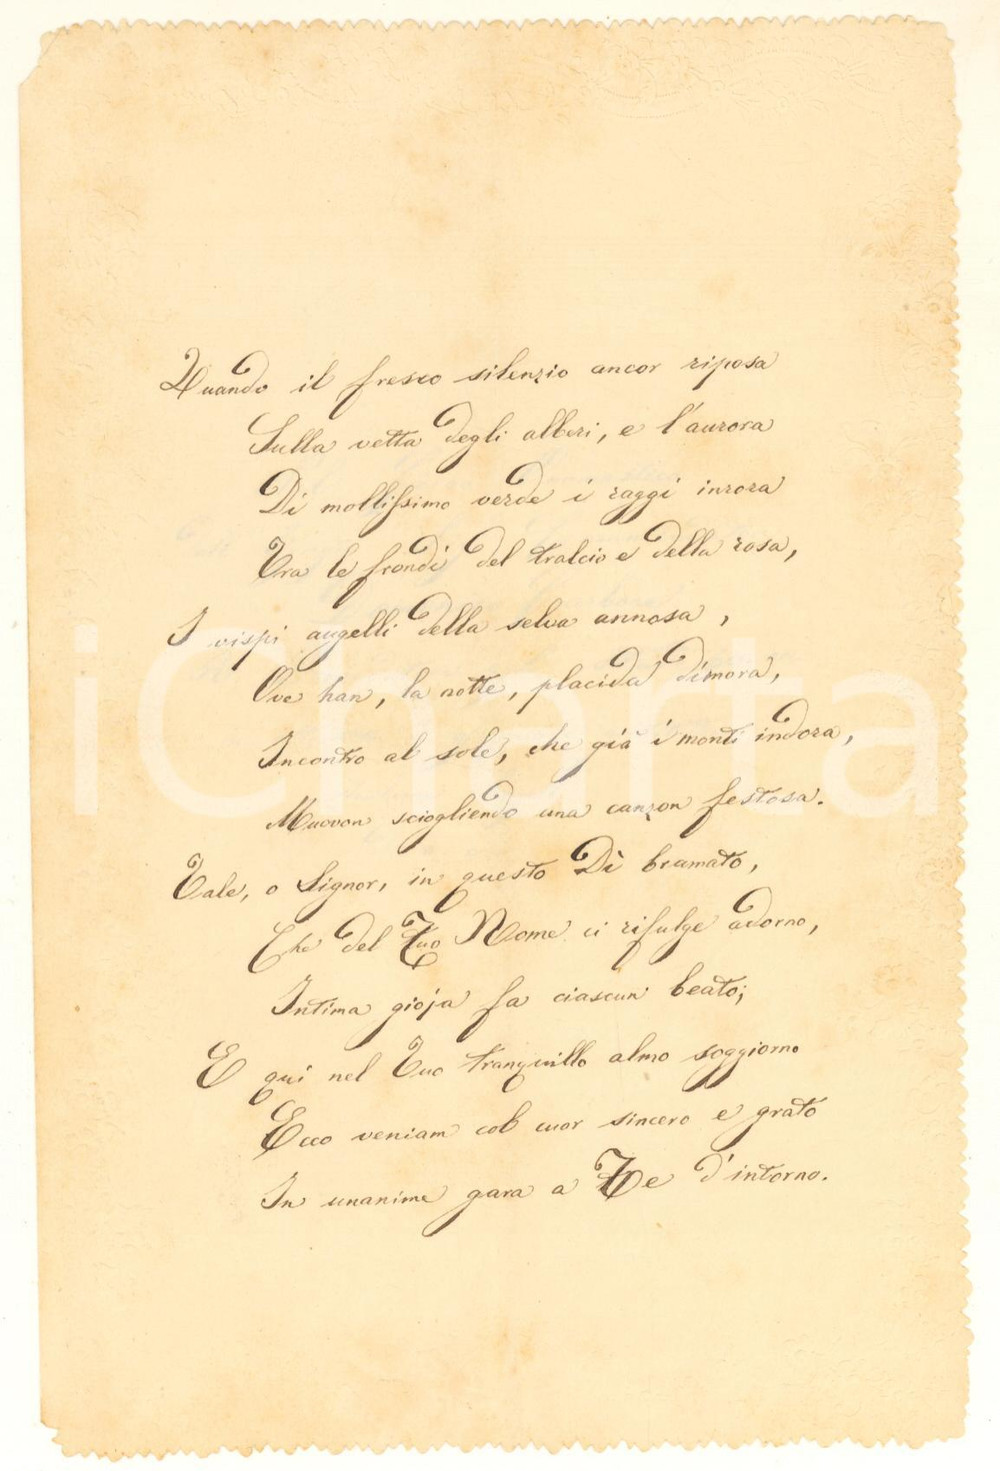 Quando il fresco silenzio ancor riposa
Sulla vetta degli alberi, e l'aurora
Di mollissimo verde i raggi inrora
Tra le frondi del tralcio e della rosa,
I vispi augelli della selva annosa,
Ove han, la notte, placida dimora,
Incontro al sole, che già i monti indora,
Muovon sciogliendo una canzon festosa.
Tale, o Signor, in questo Dì bramato,
Che del Tuo Nome ci rifulge adorno,
Intima gioja fa ciascun beato;
E qui nel Tuo tranquillo almo soggiorno
Ecco veniam col cuor sincero e grato
In unanime gara a Te d'intorno.
iCharta